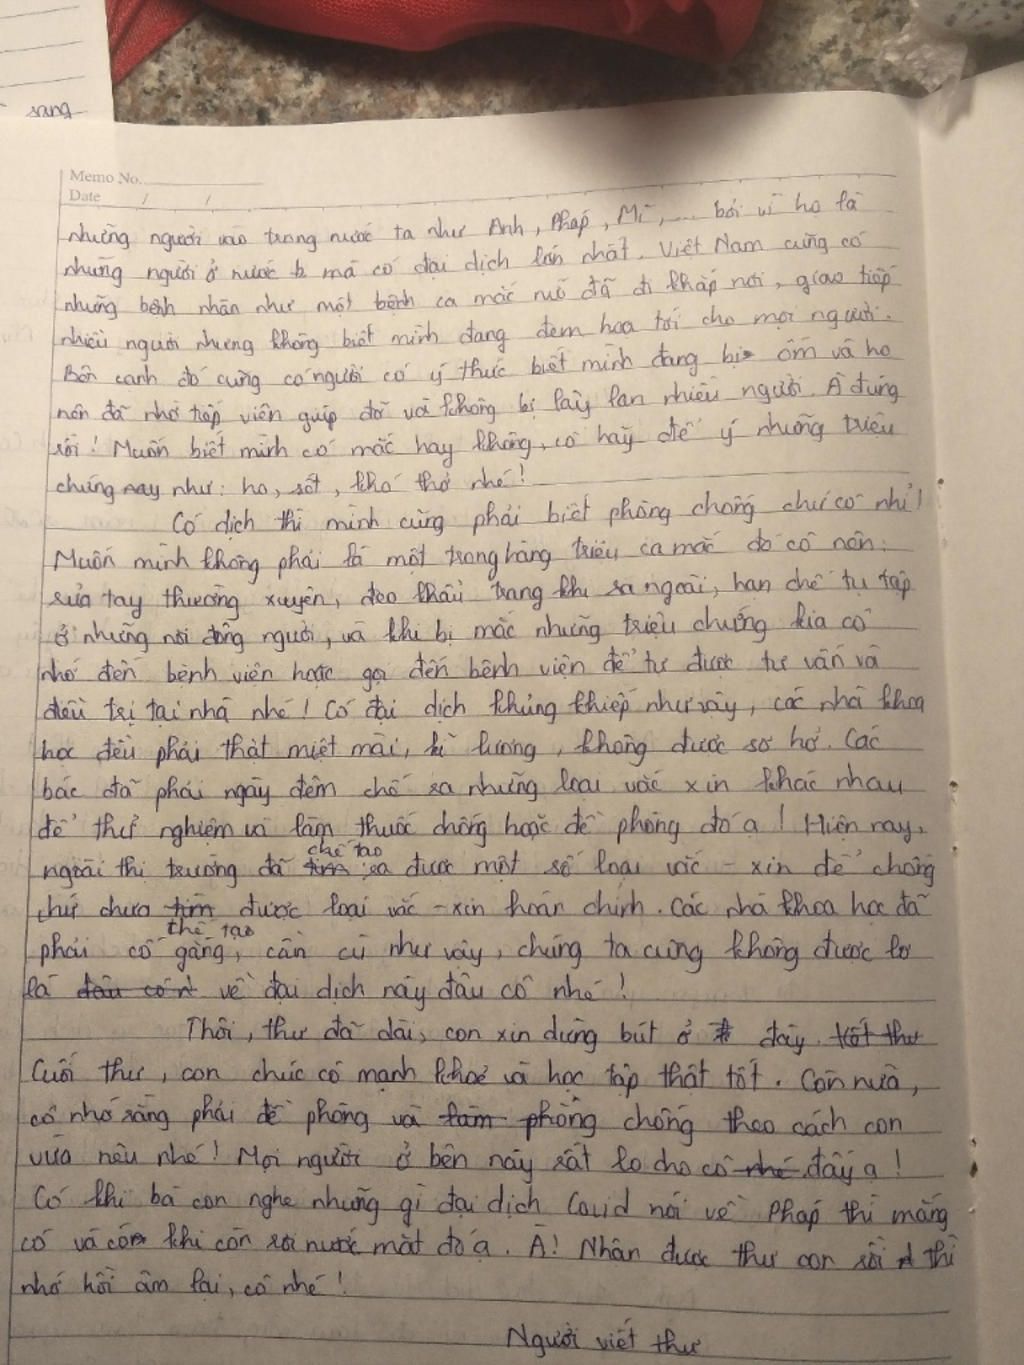 sang
Memo No.
Date / /
những người vào trong nước ta như Anh, Pháp, Mĩ,... bởi vì họ là
những người ở nước mà có đại dịch lớn nhất. Việt Nam cũng có
những bệnh nhân như một bệnh ca mắc nó đã đi khắp nơi, giao tiếp
nhiều người nhưng không biết mình đang đem hoạ tới cho mọi người.
Bên cạnh đó cũng có người có ý thức biết mình đang bị ốm và ho
nên đã nhờ tiếp viên giúp đỡ và không bị lây lan nhiều người. À đúng
rồi! Muốn biết mình có mắc hay không, cô hãy để ý những triệu
chứng say như: ho, sốt, khó thở nhé!
Có dịch thì mình cũng phải biết phòng chống chứ cô nhỉ!
Muốn mình không phải là một trong hàng triệu ca mắc đó cô nên:
rửa tay thường xuyên, đeo khẩu trang khi ra ngoài, hạn chế tụ tập
ở những nơi đông người, và khi bị mắc những triệu chứng kia cô
nhớ đến bệnh viện hoặc gọi đến bệnh viện để tư được tư vấn và
điều trị tại nhà nhé! Có đại dịch khủng khiếp như vậy, các nhà khoa
học đều phải thật miệt mài, kĩ lương, không được sơ hở. Các
bác đã phải ngày đêm chế ra những loại vắc xin khác nhau
để thử nghiệm và làm thuốc chống hoặc đề phòng đó ạ! Hiện nay,
ngoài thị trường đã tìm chế tạo ra được một số loại vắc-xin để chống
chứ chưa tìm thể tạo được loại vắc-xin hoàn chỉnh. Các nhà khoa học đã
phải cố gắng, cần cù như vậy, chúng ta cũng không được lơ
là đâu cô n về đại dịch này đâu cô nhé!
Thôi, thư đã dài, con xin dừng bút ở đây. tốt thư
Cuối thư, con chúc cô mạnh khoẻ và học tập thật tốt. Còn nữa,
cô nhớ rằng phải đề phòng và làm phòng chống theo cách con
vừa nêu nhé! Mọi người ở bên này rất lo cho cô nhé đấy ạ!
Có khi bà con nghe những gì đại dịch Covid nói về Pháp thì mắng
cố và có khi còn rơi nước mắt đó ạ. À! Nhận được thư con rồi thì
nhớ hồi âm lại, cô nhé!
Người viết thư